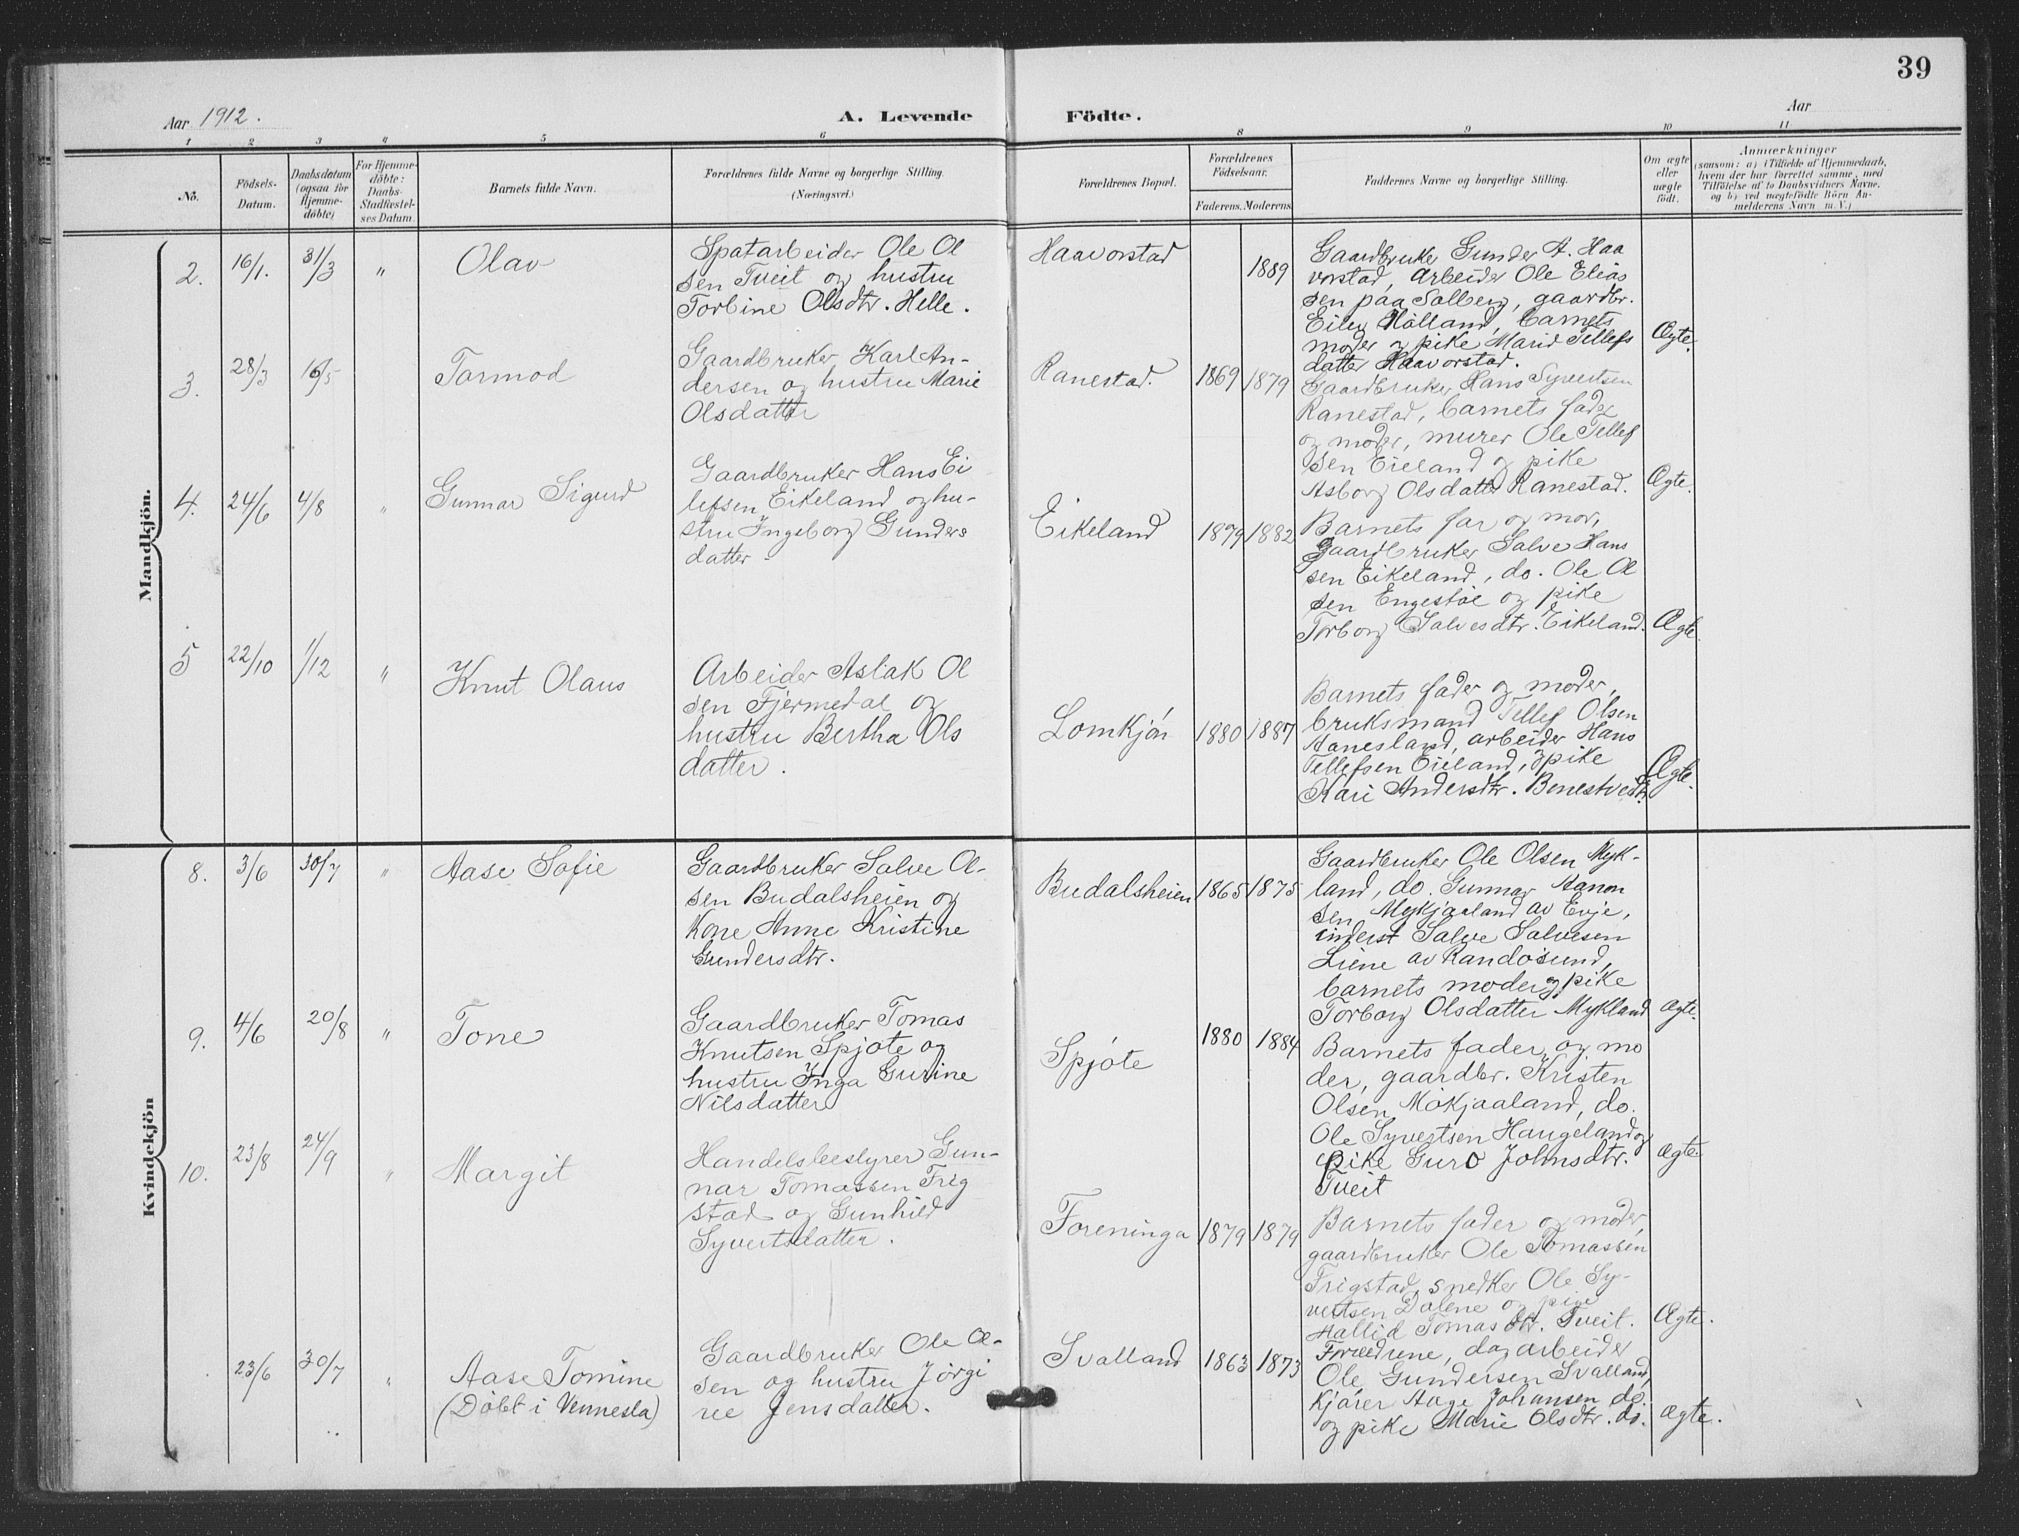 39
Aar 1912.
A. Levende Födte.
Aar
1 2 3 4 5 6 8 9 10 11
No.
Födsels-
Datum.
Daabsdatum
(ogsaa for
Hjemme-
döbte)
For Hjemme-
döbte:
Daabs-
Stadfæstel-
ses Datum.
Barnets fulde Navn.
Forældrenes fulde Navne og borgerlige Stilling.
(Næringsvei.)
Forældrenes Bopæl.
Forældrenes
Födselsaar.
Faderens. Moderens.
Faddernes Navne og borgerlige Stilling.
Om ægte
eller
uægte
födt.
Anmærkninger
(saasom: a) i Tilfælde af Hjemmedaab,
hvem der har forrettet samme, med
Tilföielse af to Daabsvidners Navne,
og b) ved uægtefödte Börn An-
melderens Navn m. V.)
Mandkjön.
2. 16/1. 31/3 " Olav
Spatarbeider Ole Ol
sen Tveit og hustru
Torbine Olsdtr. Helle.
Haavorstad
1889
Gaardbruker Gunder A. Haa
vorstad, arbeider Ole Elias
sen paa Solberg, gaardbr.
Eilev Hölland, barnets
moder og pike Marie Tellefs
datter Haavorstad.
Ægte.
3. 28/3 16/5 Tarmod
Gaardbruker Karl An-
dersen og hustru Marie
Olsdatter
Ranestad.
1869 1879
Gaardbruker Hans Syvertsen
Ranestad, barnets fader
og moder, murer Ole Tellef
sen Eieland og pike
Asborg Olsdatter Ranestad.
Ægte.
4. 24/6 4/8 " Gunnar Sigurd
Gaardbruker Hans Ei
lefsen Eikeland og hu-
stru Ingeborg Gunders
datter.
Eikeland
1879 1882
Barnets far og mor,
Gaardbruker Salve Hans
sen Eikeland, do. Ole Ol
sen Engestöl og pike
Torborg Salvesdtr. Eikeland.
Ægte.
5 22/10 1/12 " Knut Olaus
Arbeider Aslak Ol
sen Fjermedal og
hustru Bertha Ols
datter.
Lomkjör
1880 1887
Barnets fader og moder,
bruksmand Tellef Olsen
Aanesland, arbeider Hans
Tellefsen Eieland, og pike
Kari Andersdtr. Benestvedt.
Ægte.
Kvindekjön
8. 3/6 30/7 " Aase Sofie
Gaardbruker Salve Ol-
sen Budalsheien og
Kone Anne Kristine
Gundersdtr.
Budalsheien
1865 1875
Gaardbruker Ole Olsen Myk-
land, do. Gunnar Aanon
sen Mykjaaland av Evje,
inderst Salve Salvesen
Liene av Randösund,
barnets moder og pike
Torborg Olsdatter Mykland
Ægte.
9. 4/6 20/8 " Tone
Gaardbruker Tomas
Knutsen Spjote og
hustru Inga Gurine
Nilsdatter
Spjöte
1880 1884
Barnets fader og mo
der, gaardbr. Kristen
Olsen Mökjaaland, do.
Ole Syvertsen Haugeland og
pike Guro Johnsdtr.
Tveit
Ægte.
10. 23/8 24/9 " Margit
Handelsbestyrer Gun-
nar Tomassen Frig
stad og Gunhild
Syvertsdatter.
Foreninga
1879 1879
Barnets fader og moder,
gaardbruker Ole Tomassen
Frigstad, snedker Ole Sy-
vertsen Dalene og pige
Hallid Tomasdtr. Tveit.
Ægte.
23/6 30/7 " Aase Tomine
(Döbt i Vennesla)
Gaardbruker Ole Ol-
sen og hustru Jörgi
ne Jensdatter.
Svalland
1863 1873
Forældrene, dagarbeider
Ole Gundersen Svalland,
Kjörer Aage Johansen do.
og pike Marie Olsdtr. do.
Ægte.